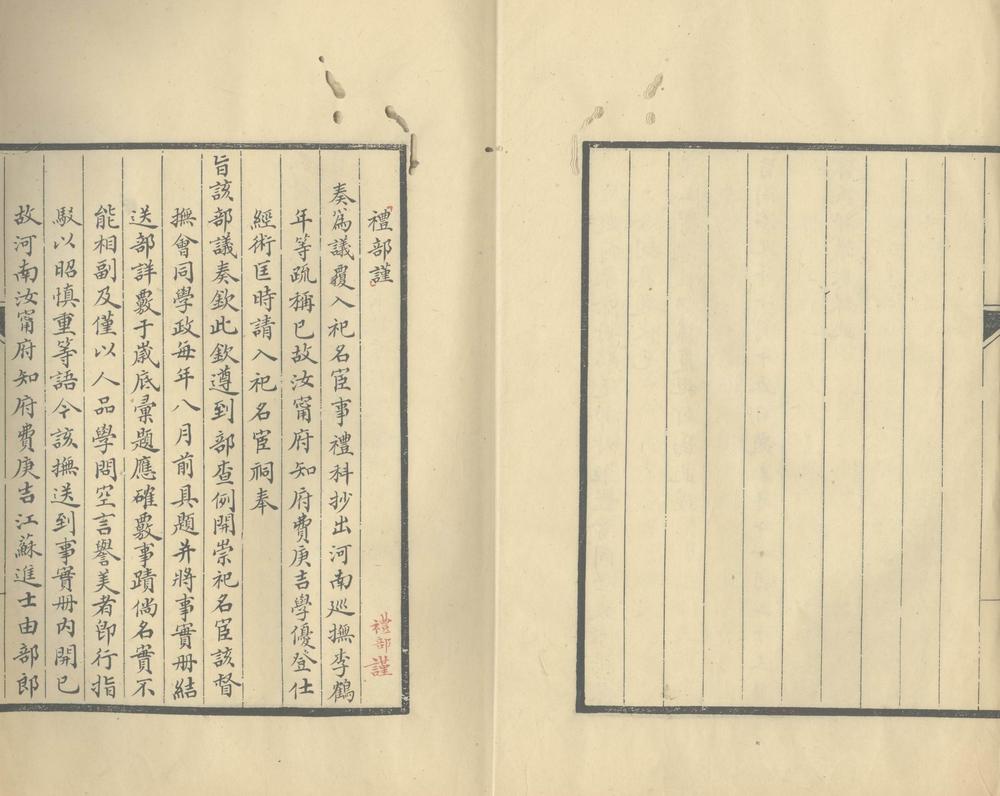 禮部謹
禮部謹
奏爲議覆入祀名宦事禮科抄出河南巡撫李鶴
年等疏稱已故汝甯府知府費庚吉學優登仕
經術匡時請入祀名宦祠奉
旨該部議奏欽此欽遵到部查例開崇祀名宦該督
撫會同學政每年八月前具題并將事實册結
送部詳覈于歲底彙題應確覈事蹟倘名實不
能相副及僅以人品學問空言譽美者卽行指
駁以昭慎重等語今該撫送到事實册內開已
故河南汝甯府知府費庚吉江蘇進士由部郎